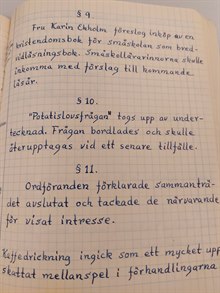 § 9.
Fru Karin Ekholm föreslog inköp av en
kristendomsbok för småskolan som bred-
vidläsningsbok. Småskollärarinnorna skulle
inkomma med förslag till kommande
läsår.
§ 10.
"Potatislovsfrågan" togs upp av under-
tecknad. Frågan bordlades och skulle
återupptagas vid ett senare tillfälle.
§ 11.
Ordföranden förklarade sammanträ-
det avslutat och tackade de närvarande
för visat intresse.
Kaffedrickning ingick som ett mycket upp
skattat mellanspel i förhandlingarna